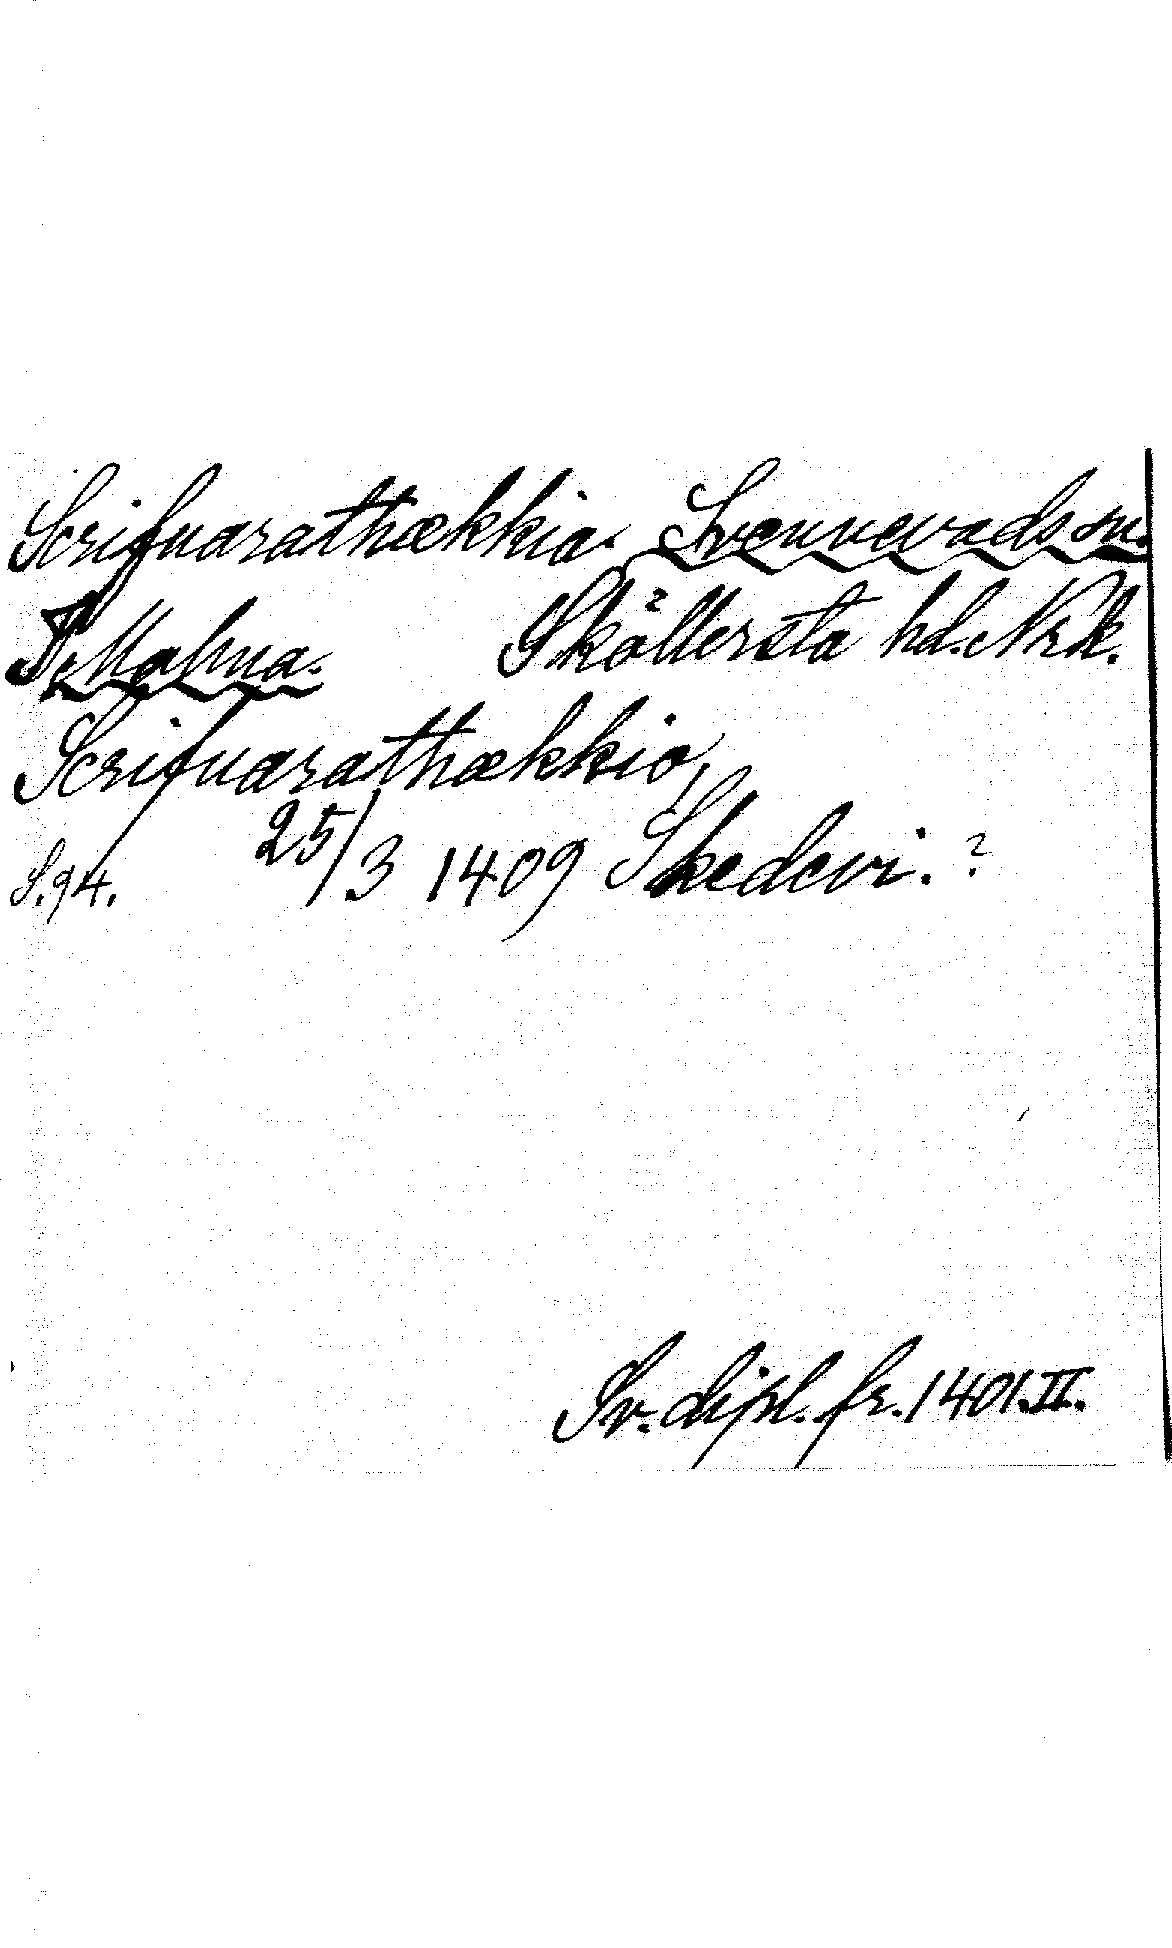 Scrifuarathækkia. Svennevads sn.
I. Malma. Sköllersta hd. Nrk.
Scrifuarathækkio,
S. 94. 25/3 1409 Skedevi. ?
Sv. dipl. fr. 1401. II.